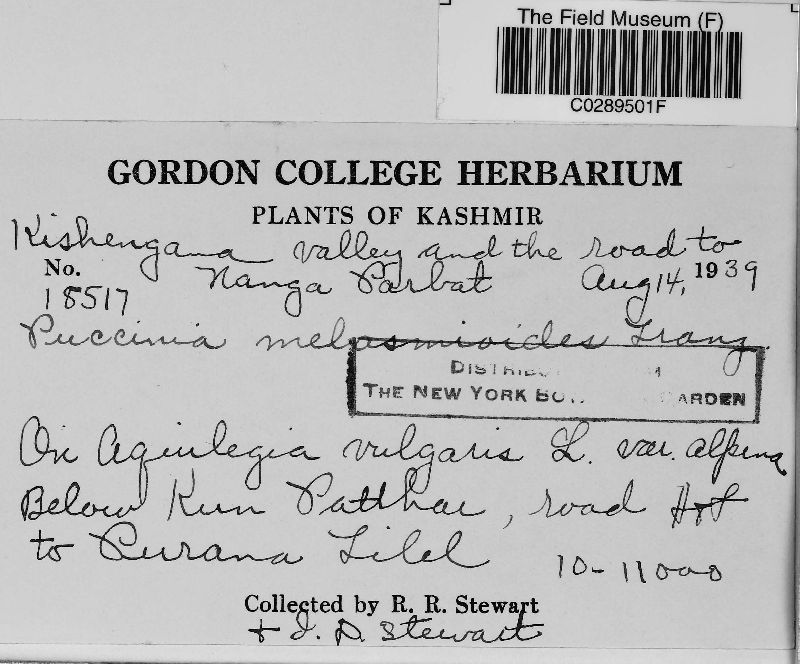 The Field Museum (F)
C0289501F
GORDON COLLEGE HERBARIUM
PLANTS OF KASHMIR
Kishengana valley and the road to
No. Nanga Parbat Aug 14, 1939
18517
Puccinia melasmioides Tranz.
THE NEW YORK BO.. ARDEN
On Aquilegia vulgaris L. var. alpina
Below Kun Patthar, road
to Purana Tilel 10-11000
Collected by R. R. Stewart
+ I. D. Stewart